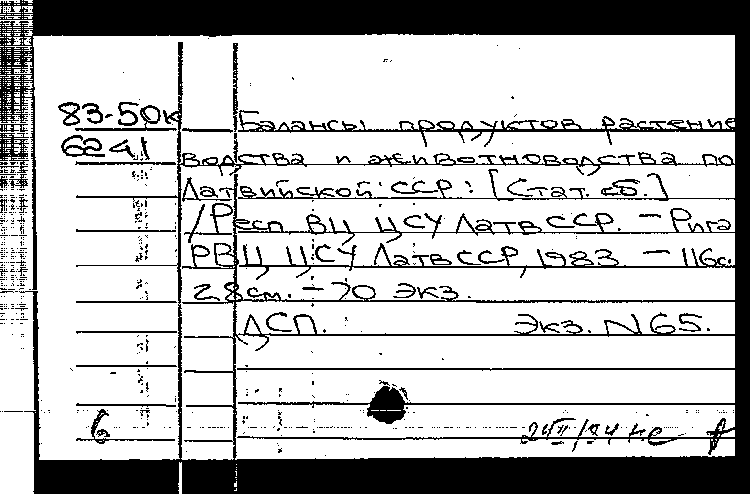 83-50к Балансы продуктов растение
6241 водства и животноводства по
Латвийской ССР: [Стат. сб.]
/Респ. ВЦ ЦСУ Латв ССР. — Рига
РВЦ ЦСУ Латв ССР, 1983 — 116с.
28 см. — 70 экз.
ДСП. Экз. N 65.
б